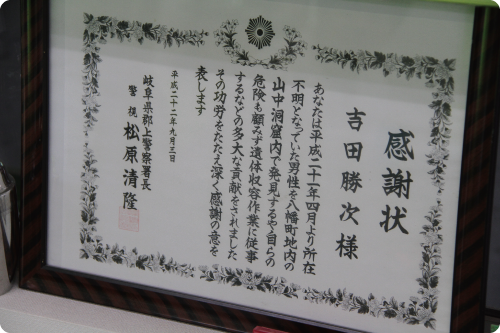 感謝状
吉田勝次様
あなたは平成二十一年四月より所在
不明となっていた男性を八幡町地内の
山中洞窟内で発見するや自らの
危険も顧みず遺体収容作業に従事
するなどの多大な貢献をされました
その功労をたたえ深く感謝の意を
表します
平成二十一年九月三日
岐阜県郡上警察署長
警視 松原清隆